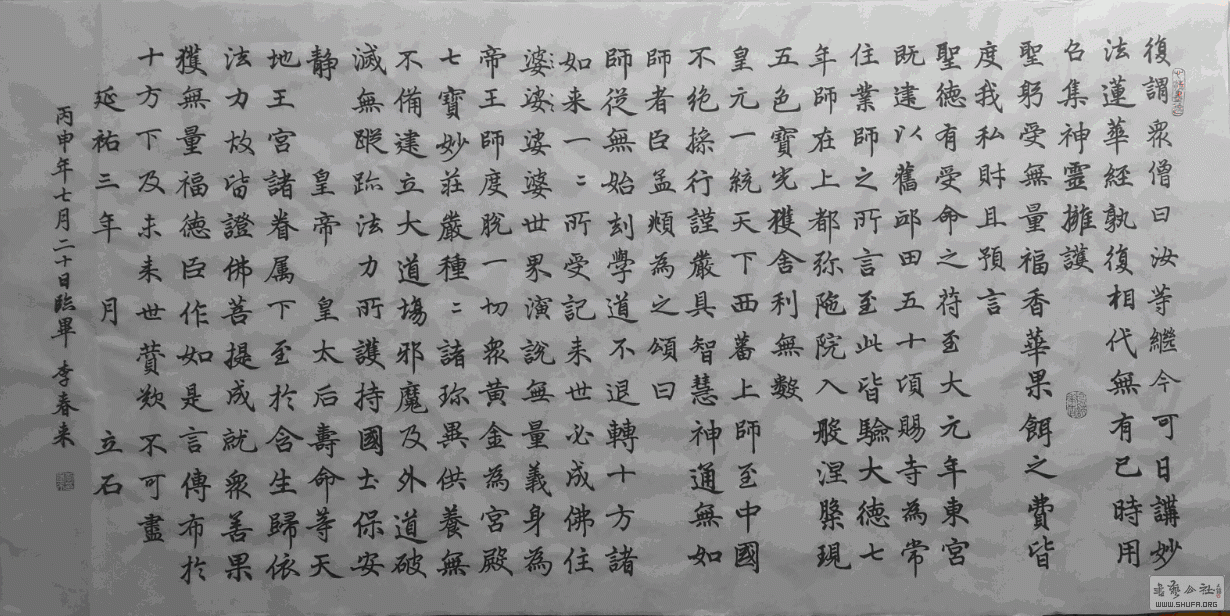 復謂衆僧曰汝等繼今可日講妙
法蓮華經孰復相代無有已時用
召集神靈擁護
聖躬受無量福香華果餌之費皆
度我私財且預言
聖德有受命之符至大元年東宮
既建以舊邸田五十頃賜寺為常
住業師之所言至此皆驗大德七
年師在上都弥陁院入般涅槃現
五色寶光獲舍利無數
皇元一統天下西蕃上師至中國
不絶操行謹嚴具智慧神通無如
師者臣孟頫為之頌曰
師從無始刻學道不退轉十方諸
如来一〻所受記来世必成佛住
婆婆婆婆世界演說無量義身為
帝王師度脫一切衆黃金為宮殿
七寶妙莊嚴種〻諸珎異供養無
不備建立大道場邪魔及外道破
滅無蹤跡法力所護持國土保安
静 皇帝 皇太后壽命等天
地王宮諸眷属下至於含生歸依
法力故皆證佛菩提成就衆善果
獲無量福德臣作如是言傳布於
十方下及未来世贊歎不可盡
延祐三年 月 立石
丙申年七月二十日臨畢 李春来
WWW.SHUFA.ORG